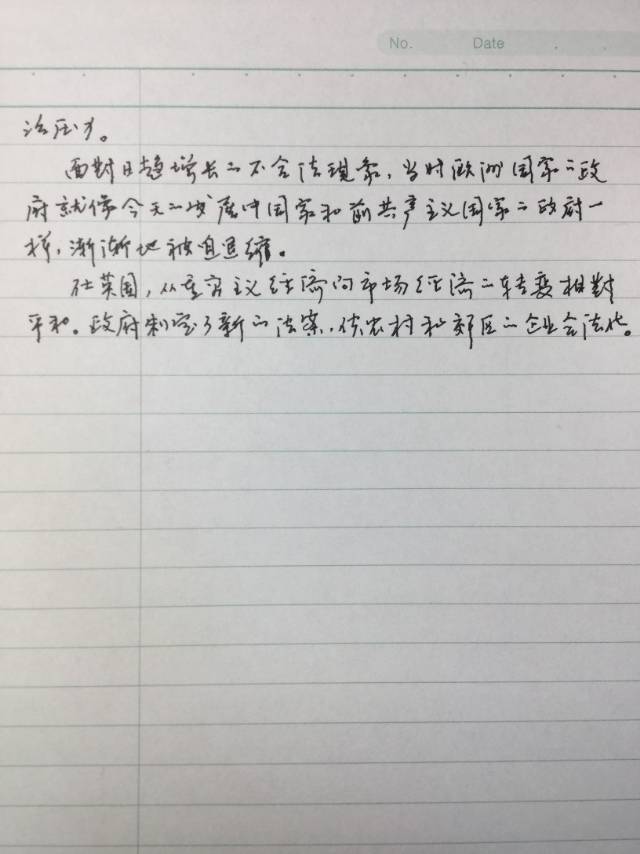 No. Date
治压力。
面對日趋增长的不合法現象,当时欧洲国家的政
府就像今天的发展中国家和前共产主义国家的政府一
样,渐渐地被迫退缩。
在英国,从重商主义经济向市场经济的转变相對
平和。政府制定了新的法案,使农村和郊区的企业合法化。